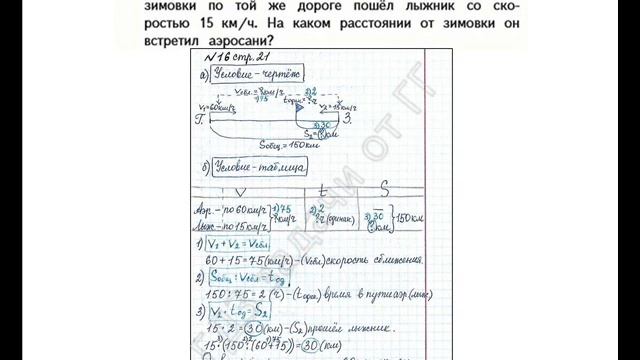 зимовки по той же дороге пошёл лыжник со ско-
ростью 15 км/ч. На каком расстоянии от зимовки он
встретил аэросани?
№16 стр. 21
а) Условие - чертёж
Vсбл. = ? км/ч 2) 2
1) 75 tодин = ? ч
V1 = 60 км/ч V2 = 15 км/ч
Г. З.
3) 30
S2 = ? км
Sобщ. = 150 км
б) Условие - таблица
V t S
Аэр. - по 60 км/ч 1) 75 2) 2 —
? км/ч ? ч (одинак.) 3) 30 150 км
Лыж. - по 15 км/ч ? км
1) V1 + V2 = Vсбл
60 + 15 = 75 (км/ч) - (Vсбл) скорость сближения.
2) Sобщ : Vсбл = tод
150 : 75 = 2 (ч) - (tодин) время в пути аэр. (лыж.)
3) V2 · tод = S2
15 · 2 = 30 (км) - (S2) прошёл лыжник.
15 · (150 : (60 + 15)) = 30 (км)